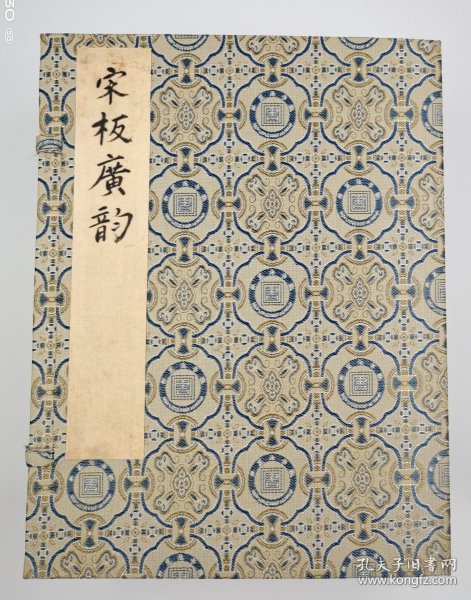 宋板廣韵
孔夫子旧书网
www.kongfz.com